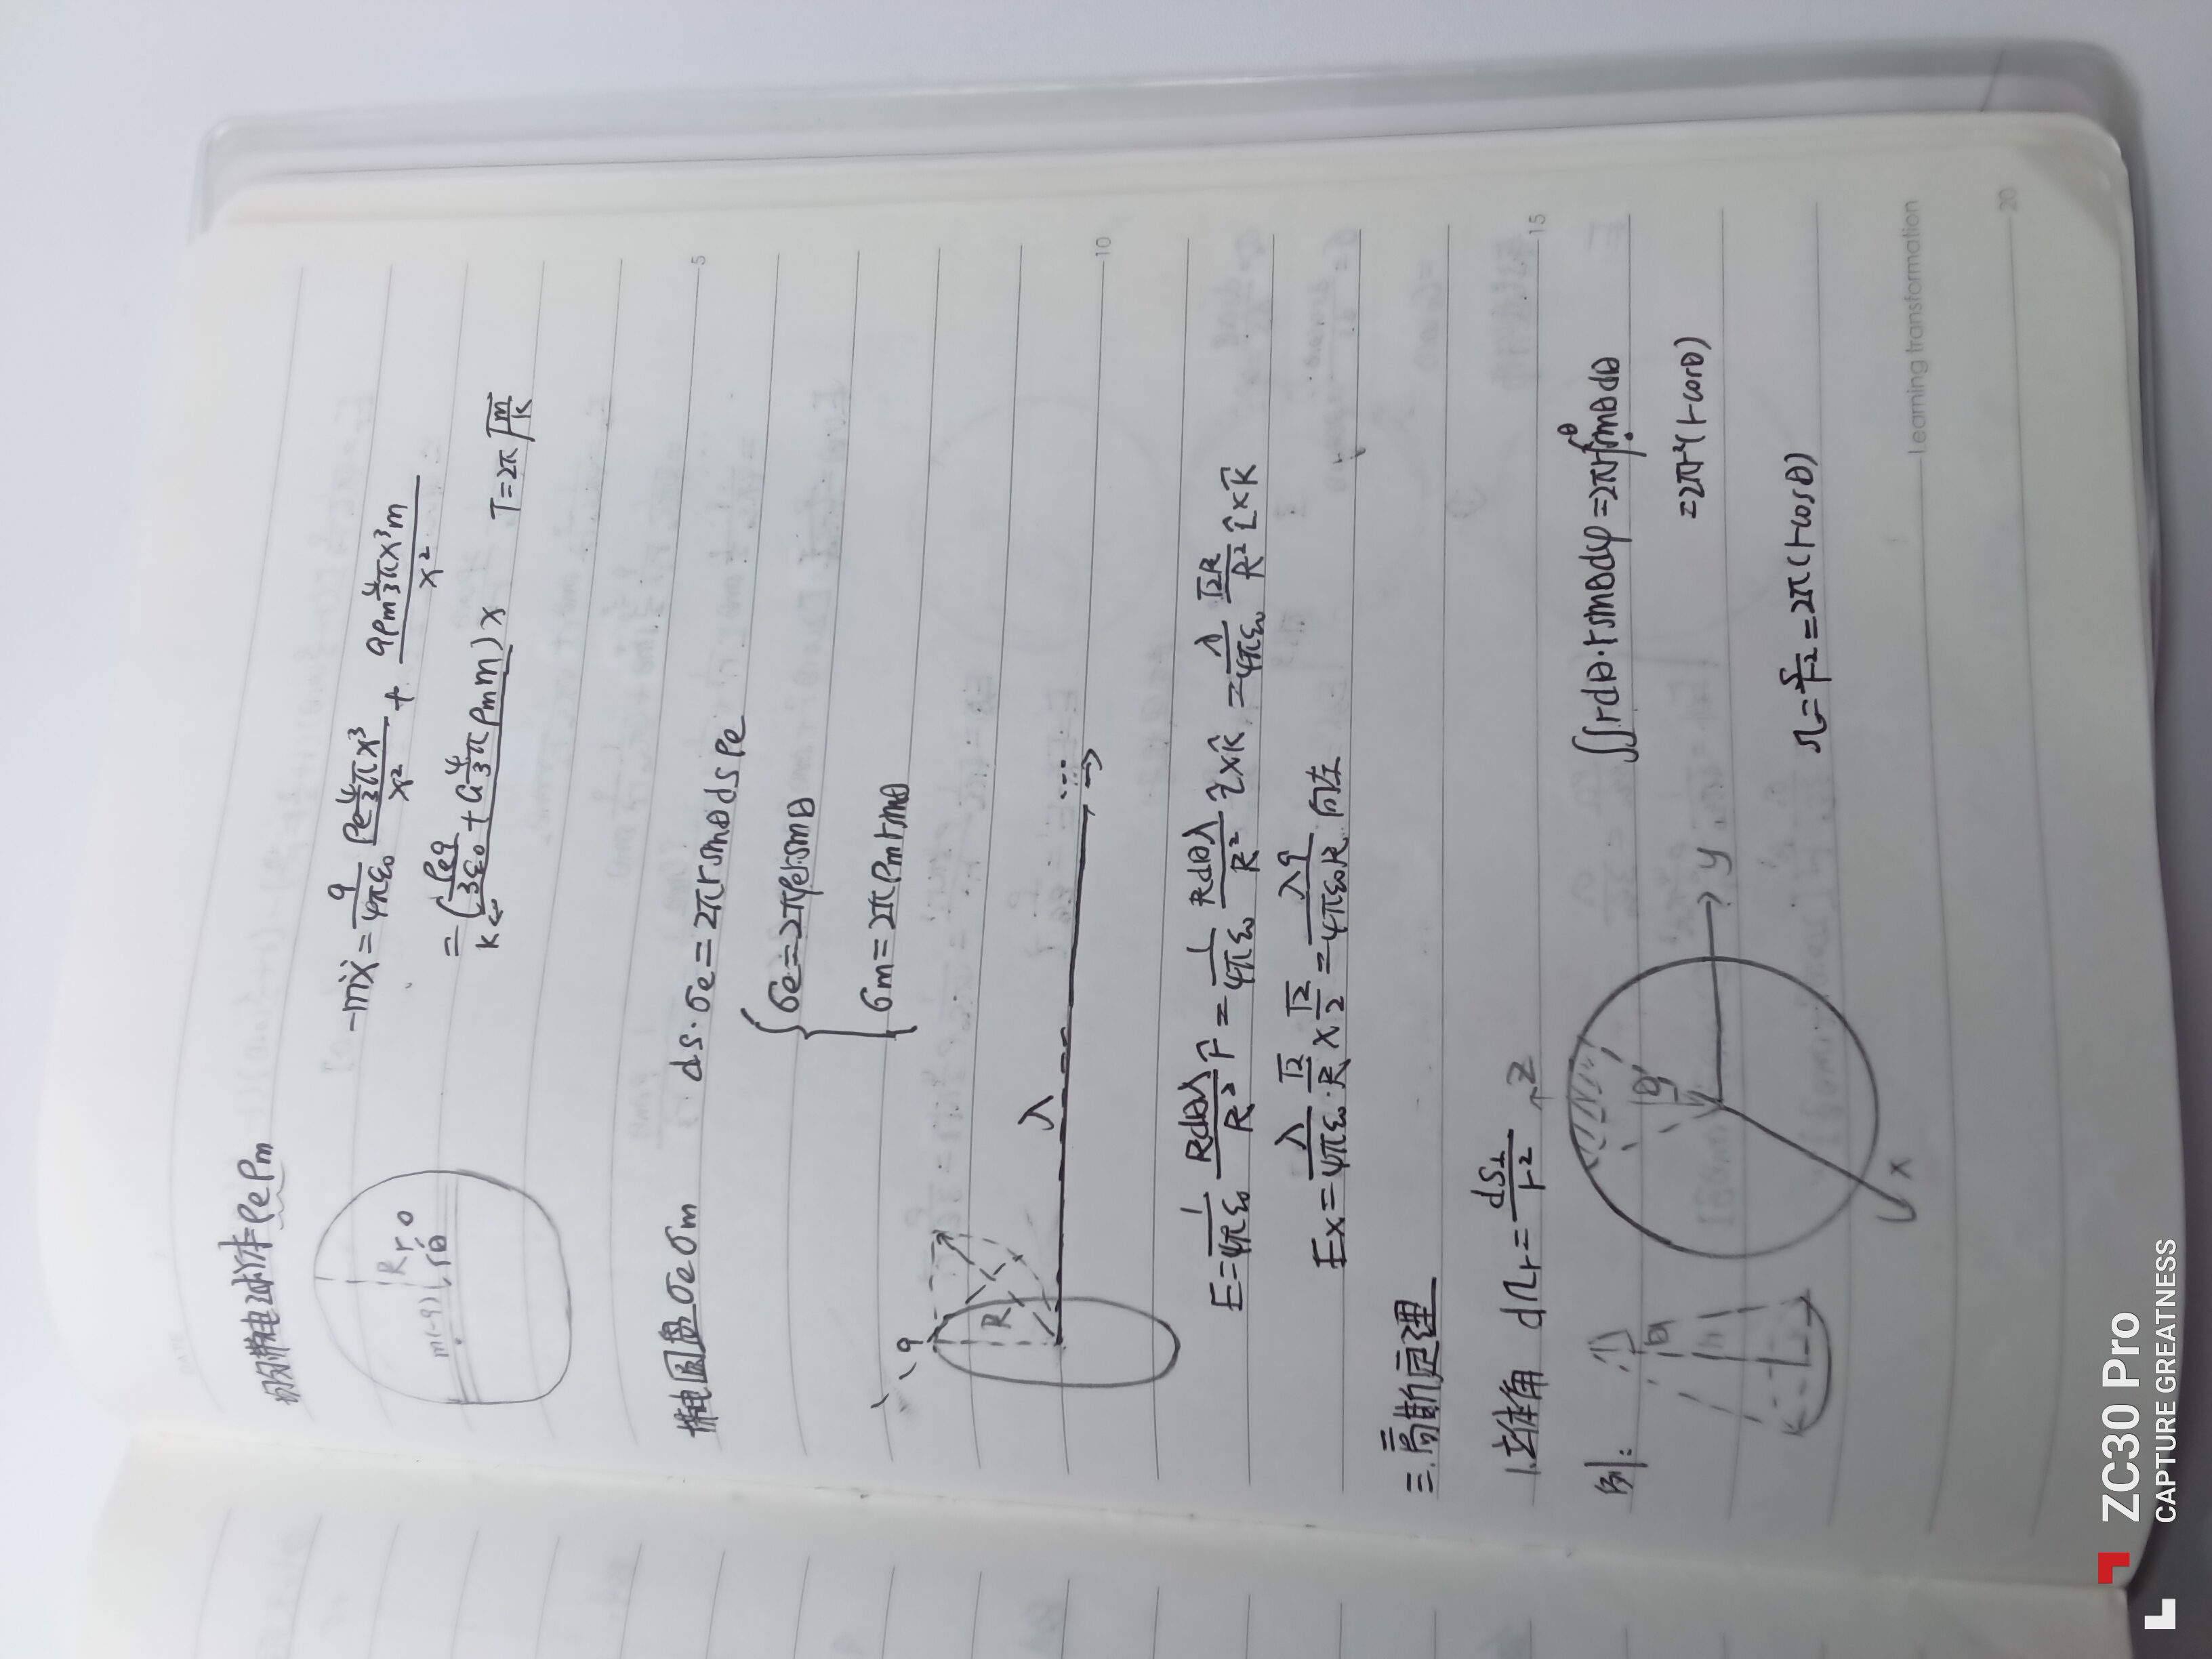 均匀带电球体 ρe ρm
-mẍ = q/4πε₀ ρe 4/3 πx³/x² + Gρm 4/3 πx³m/x²
R
r
O
θ
m(-q)
= (ρeq/3ε₀ + G 4/3 π ρm m) x
k
T=2π√m/k
带电圆盘 σe σm
ds·σe = 2πr sinθ ds ρe
σe = 2πρe r sinθ
σm = 2πρm r sinθ
q
R
λ
E = 1/4πε₀ Rdθλ/R² r̂ = 1/4πε₀ Rdθλ/R² î×k̂ = λ/4πε₀ √2R/R² î×k̂
Ex = λ/4πε₀·R √2 × √2/2 = λq/4πε₀R 向左
三.高斯定理
1.立体角 dΩr = ds⊥/r²
例:
θ
z
y
x
∬rdθ·r sinθdφ = 2πr²∫θ sinθdθ
= 2πr²(1-cosθ)
Ω = S/r² = 2π(1-cosθ)
5
10
15
20
Learning transformation
ZC30 Pro
CAPTURE GREATNESS